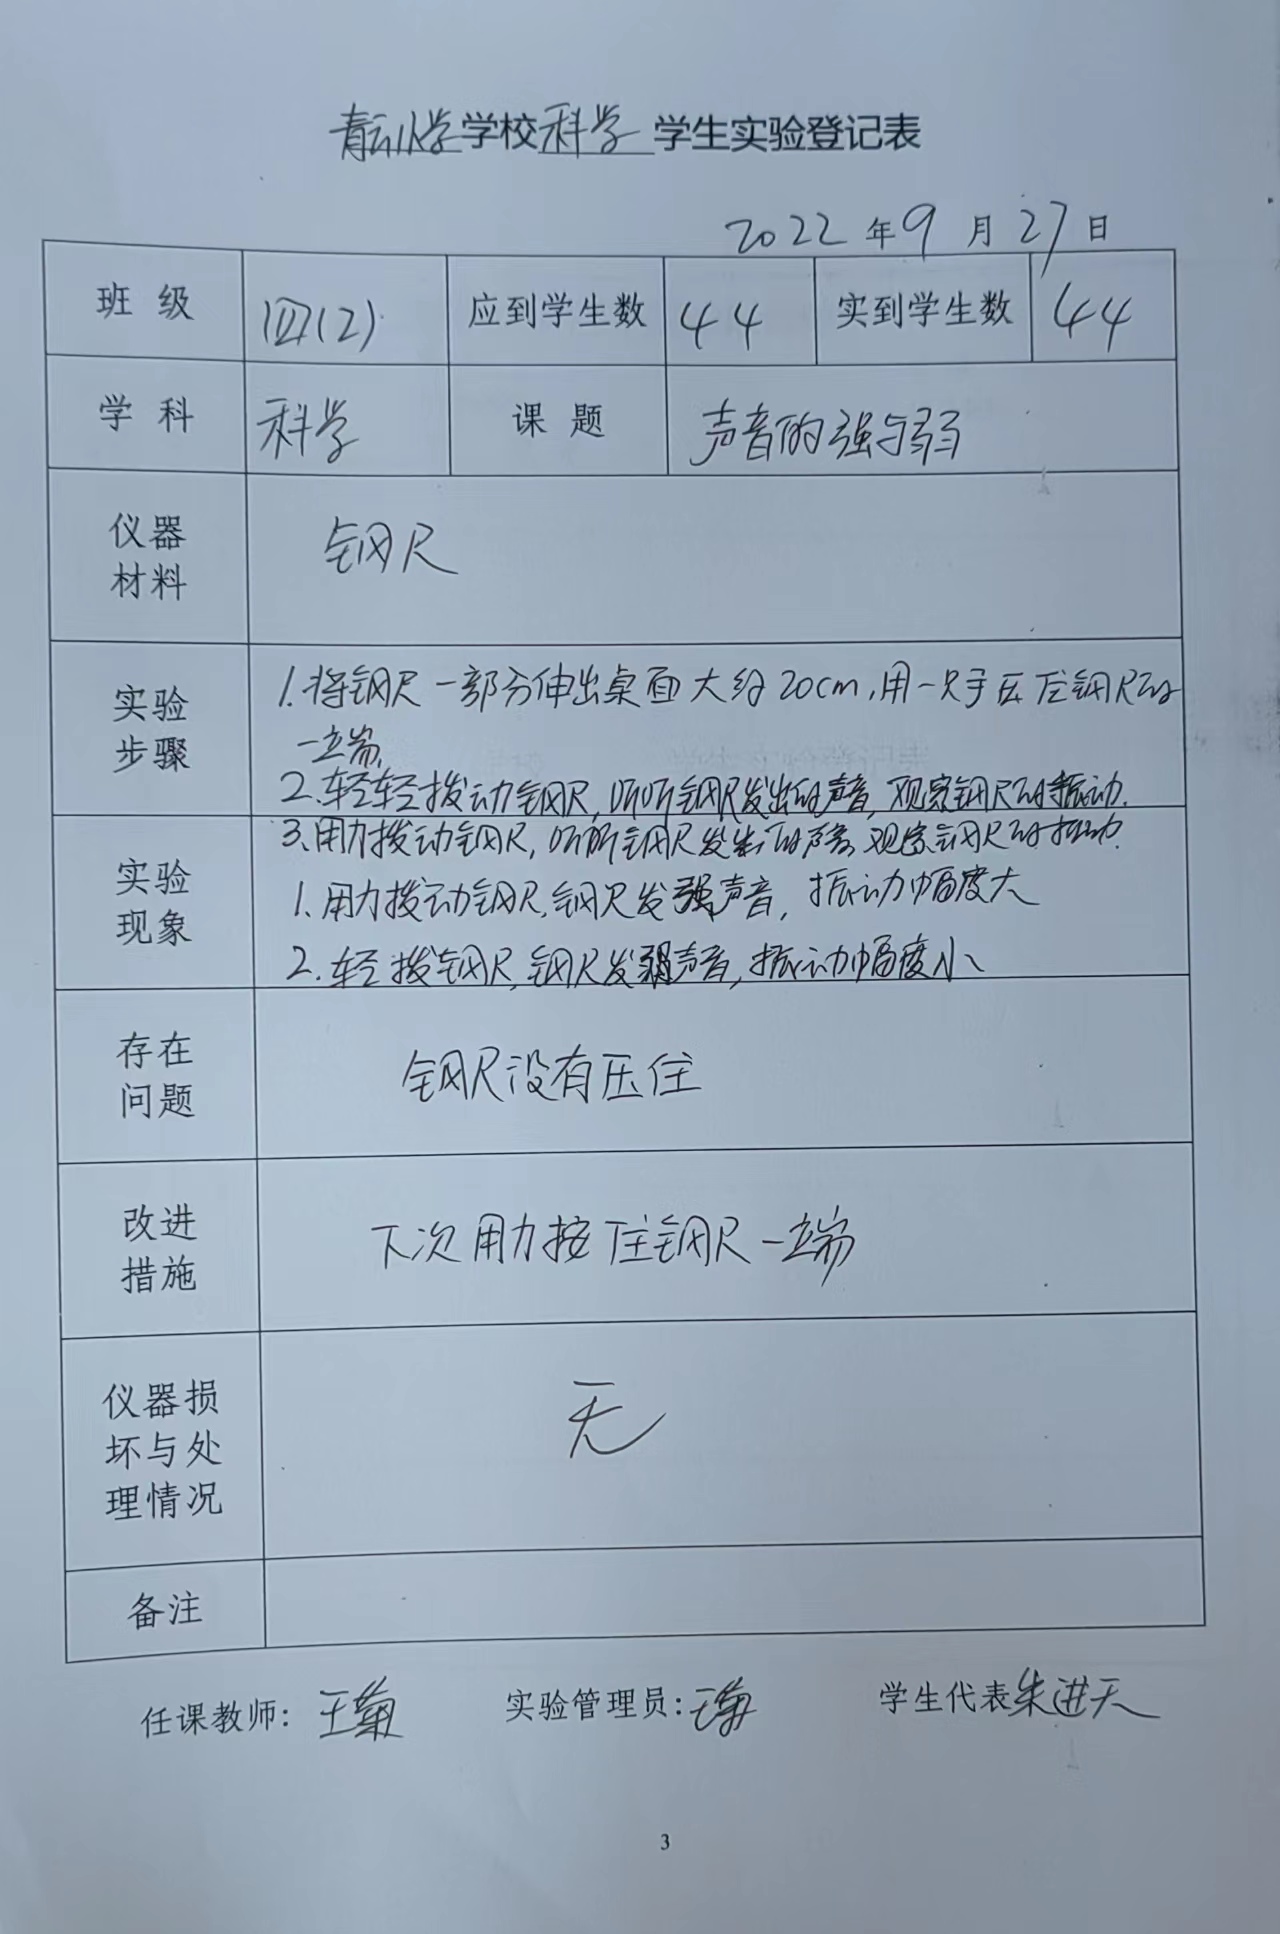 青云小学学校科学学生实验登记表
2022年9月27日
班级 四(2) 应到学生数 44 实到学生数 44
学科 科学 课题 声音的强与弱
仪器材料 钢尺
实验步骤
1.将钢尺一部分伸出桌面大约20cm,用一只手压住钢尺的
一端.
2.轻轻拨动钢尺,听听钢尺发出的声音,观察钢尺的振动.
3.用力拨动钢尺,听听钢尺发出的声音,观察钢尺的振动.
实验现象
1.用力拨动钢尺,钢尺发强声音,振动幅度大
2.轻拨钢尺,钢尺发弱声音,振动幅度小
存在问题 钢尺没有压住
改进措施 下次用力按住钢尺一端
仪器损坏与处理情况 无
备注
任课教师:王菊 实验管理员:王 学生代表朱进天
3